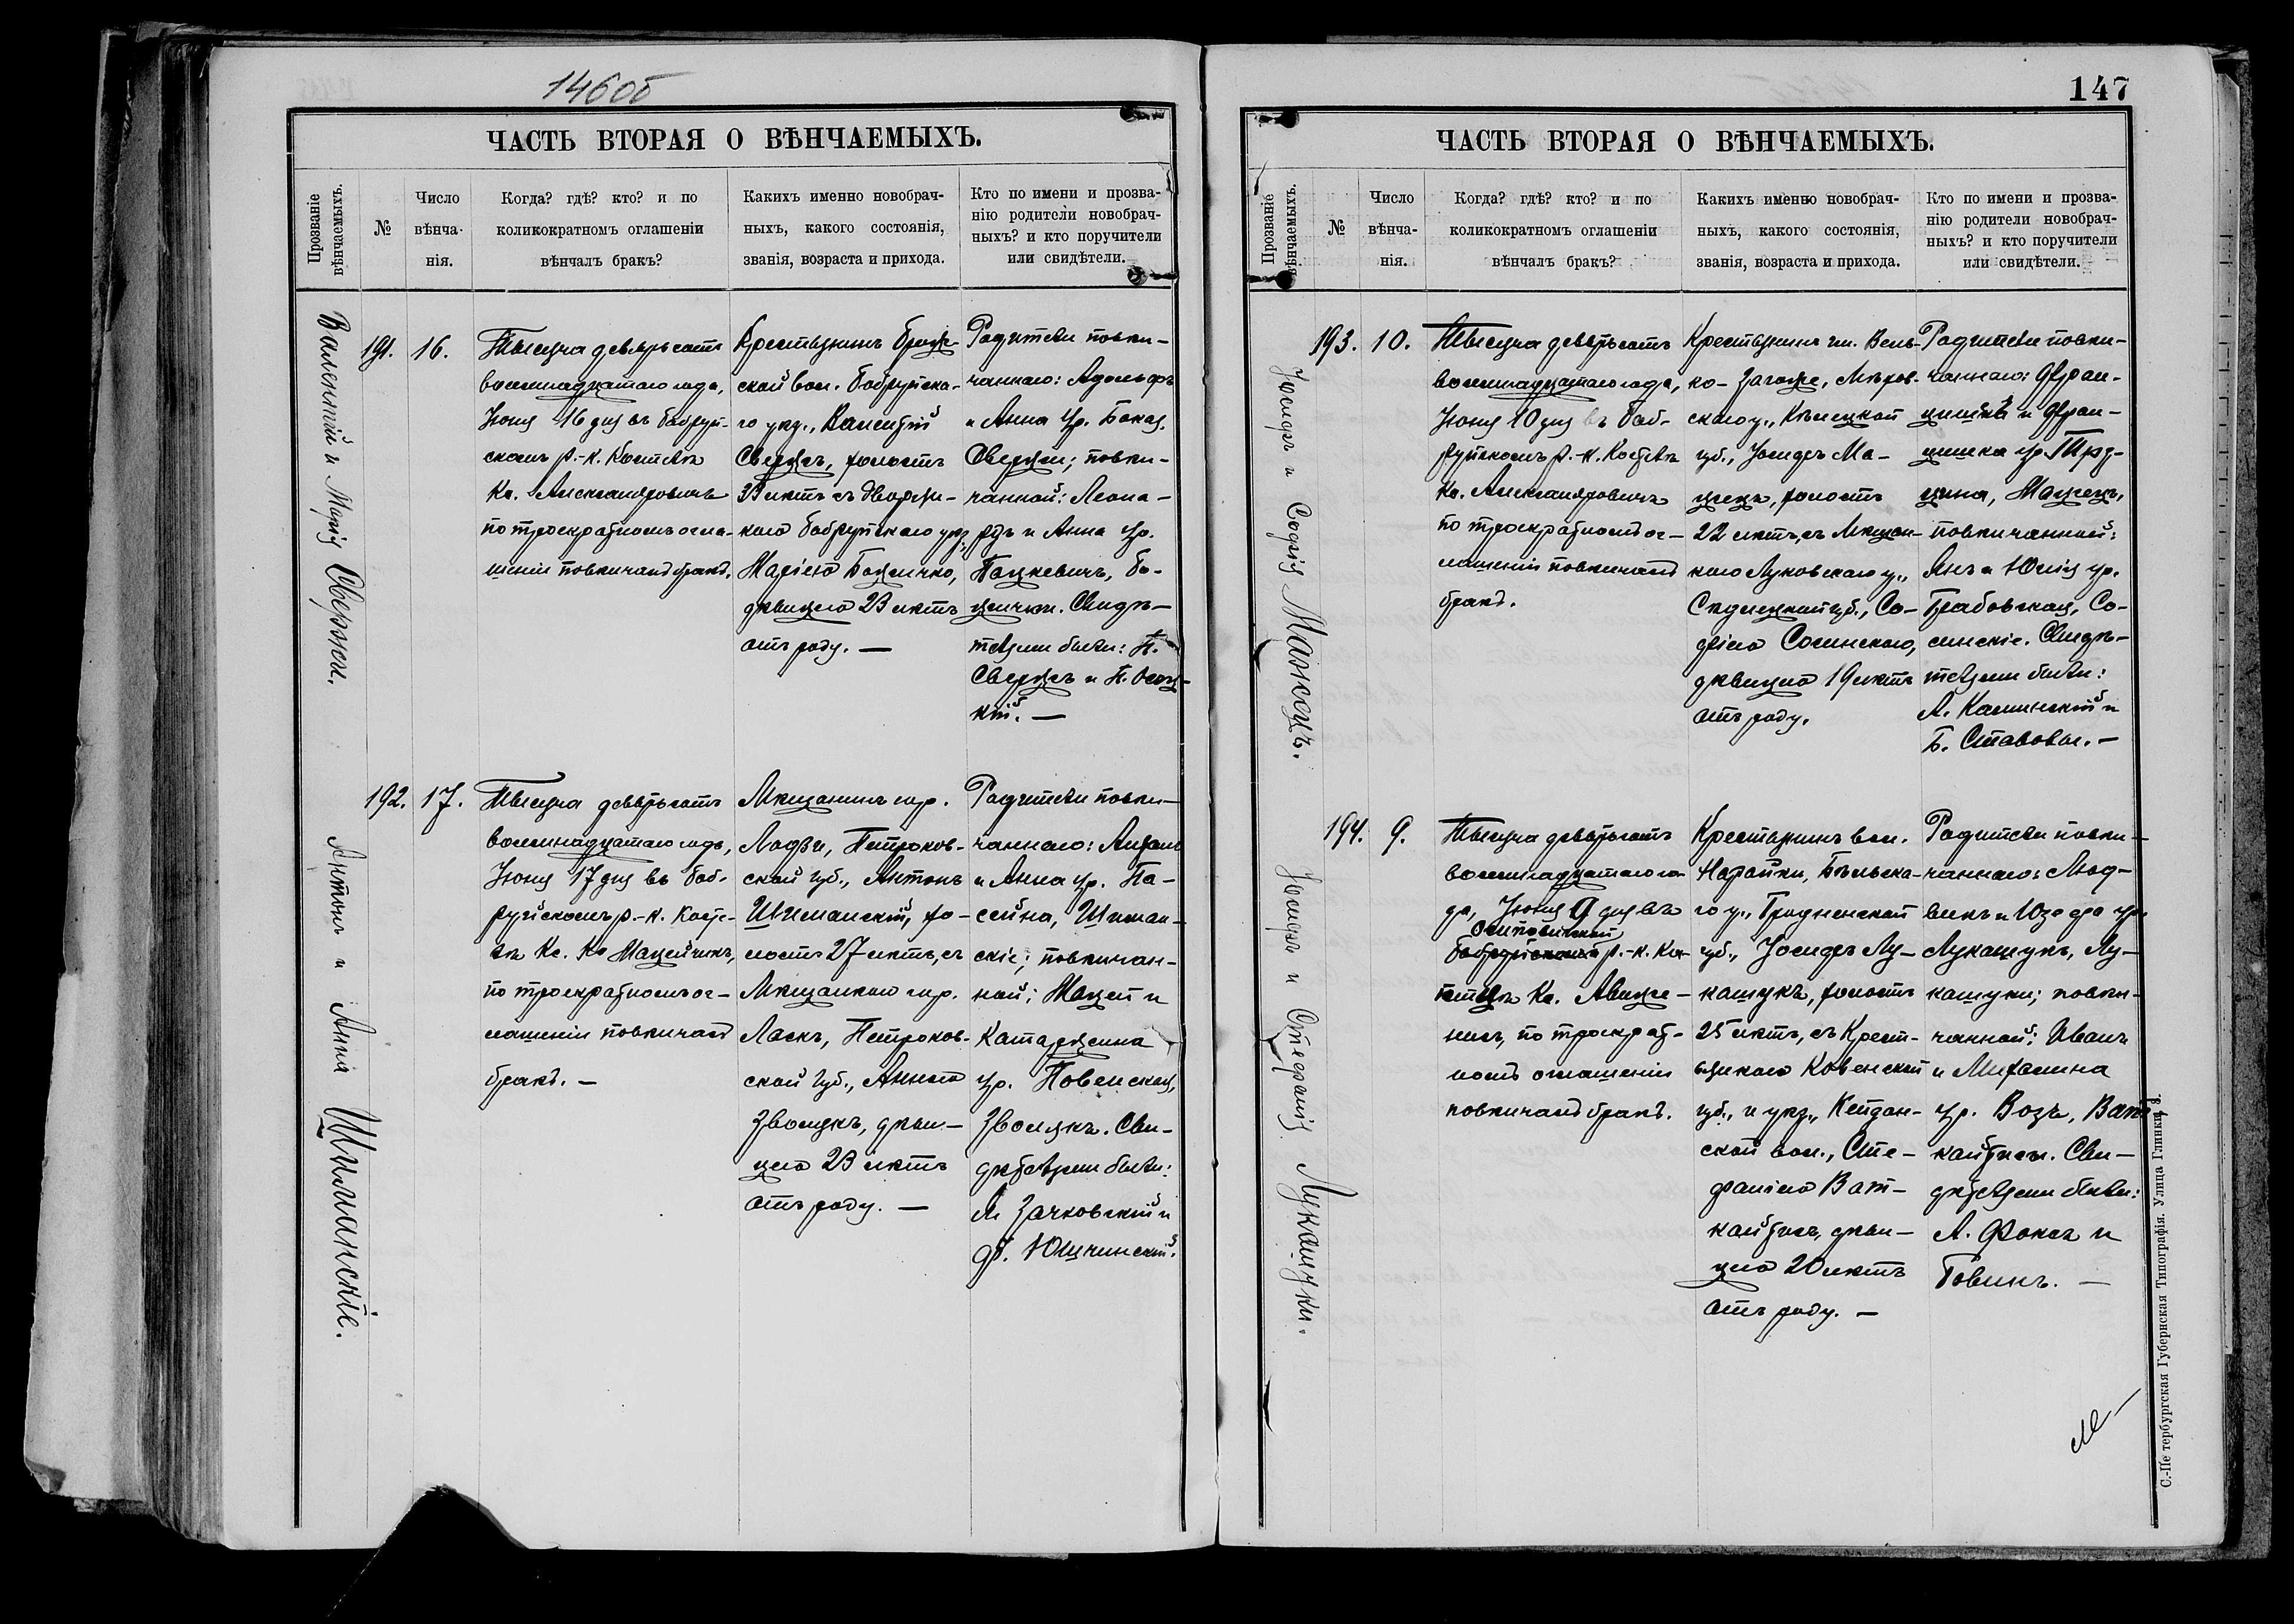 146об
ЧАСТЬ ВТОРАЯ О ВѢНЧАЕМЫХЪ.
Прозваніе
вѣнчаемыхъ.
№
Число
вѣнча-
нія.
Когда? гдѣ? кто? и по
коликократномъ оглашеніи
вѣнчалъ бракъ?
Какихъ именно новобрач-
ныхъ, какого состоянія,
званія, возраста и прихода.
Кто по имени и прозва-
нію родители новобрач-
ныхъ? и кто поручители
или свидѣтели.
Валентій и Марія
191.
16.
Тысяча девятьсотъ
восемнадцатаго года,
Іюня 16 дня въ Бобруй-
скомъ р.-к. Костелѣ
Кс. Александровичъ
по троекратномъ огла-
шеніи повѣнчалъ бракъ.
Крестьянинъ
ской вол. Бобруйска-
го уѣз., Валентій
холостъ
23 лѣтъ съ Дворян-
кою Бобруйскаго уѣз.
Маріею
дѣвицею 23 лѣтъ
отъ роду. —
Родители повѣн-
чаннаго: Адольфъ
и Анна ур.
повѣн-
чанной: Леона-
рдъ и Анна ур.
Свидѣ-
телями были: П.
и П.
кій. —
Антонъ и Анна Шиманскіе.
192.
17.
Тысяча девятьсотъ
восемнадцатаго года,
Іюня 17 дня въ Боб-
руйскомъ р.-к. Косте-
лѣ Кс. Мацейчикъ,
по троекратномъ ог-
лашеніи повѣнчалъ
бракъ. —
Мѣщанинъ гор.
Лодзи, Петроков-
ской губ., Антонъ
Шиманскій, хо-
лостъ 27 лѣтъ, съ
Мѣщанкою гор.
Ласкъ, Петроков-
ской губ., Анною
дѣви-
цею 23 лѣтъ
отъ роду. —
Родители повѣн-
чаннаго:
и Анна ур. Па-
Шиман-
скіе; повѣнчан-
ной: Мацей и
Катаржина
ур.
Сви-
дѣтелями были:
Зачковскій и
Ф. Ющинскій.
147
ЧАСТЬ ВТОРАЯ О ВѢНЧАЕМЫХЪ.
Прозваніе
вѣнчаемыхъ.
№
Число
вѣнча-
нія.
Когда? гдѣ? кто? и по
коликократномъ оглашеніи
вѣнчалъ бракъ?
Какихъ именно новобрач-
ныхъ, какого состоянія,
званія, возраста и прихода.
Кто по имени и прозва-
нію родители новобрач-
ныхъ? и кто поручители
или свидѣтели.
Іосифъ и Софія
193.
10.
Тысяча девятьсотъ
восемнадцатаго года,
Іюня 10 дня въ Боб-
руйскомъ р.-к. Костелѣ
Кс. Александровичъ
по троекратномъ ог-
лашеніи повѣнчалъ
бракъ.
Крестьянинъ гм. Вель-
ко-
скаго у., Кѣлецкой
губ., Іосифъ Ма-
холостъ
22 лѣтъ, съ Мѣщан-
кою Луковскаго у.,
Сѣдлецкой губ., Со-
фіею Сосинскою,
дѣвицею 19 лѣтъ
отъ роду.
Родители повѣн-
чаннаго: Фран-
цишекъ и Фран-
цишка ур.
повѣнчанной:
Янъ и Юлія ур.
Грабовская, Со-
синскіе. Свидѣ-
телями были:
А. Каминскій и
Б.
Іосифъ и Стефанія Лукашуки.
194.
9.
Тысяча девятьсотъ
восемнадцатаго го-
да, Іюня 9 дня въ
Осиповичскомъ
Бобруйскомъ р.-к. Ко-
стелѣ Кс.
по троекрат-
номъ оглашеніи
повѣнчалъ бракъ.
Крестьянинъ вол.
Наройки, Бѣльска-
го у., Гродненской
губ., Іосифъ Лу-
кашукъ, холостъ
25 лѣтъ, съ Крест-
ьянкою Ковенской
губ., и уѣз., Кейдан-
ской вол., Сте-
фаніею Ват-
дѣви-
цею 20 лѣтъ
отъ роду. —
Родители повѣн-
чаннаго: Люд-
викъ и Юзефа ур.
Лукашукъ, Лу-
кашуки; повѣн-
чанной: Иванъ
и Михалина
ур. Возъ, Ват-
Сви-
дѣтелями были:
А. Фокса и
Говинъ. —
С.-Петербургская Губернская Типографія. Улица Глинки 8.